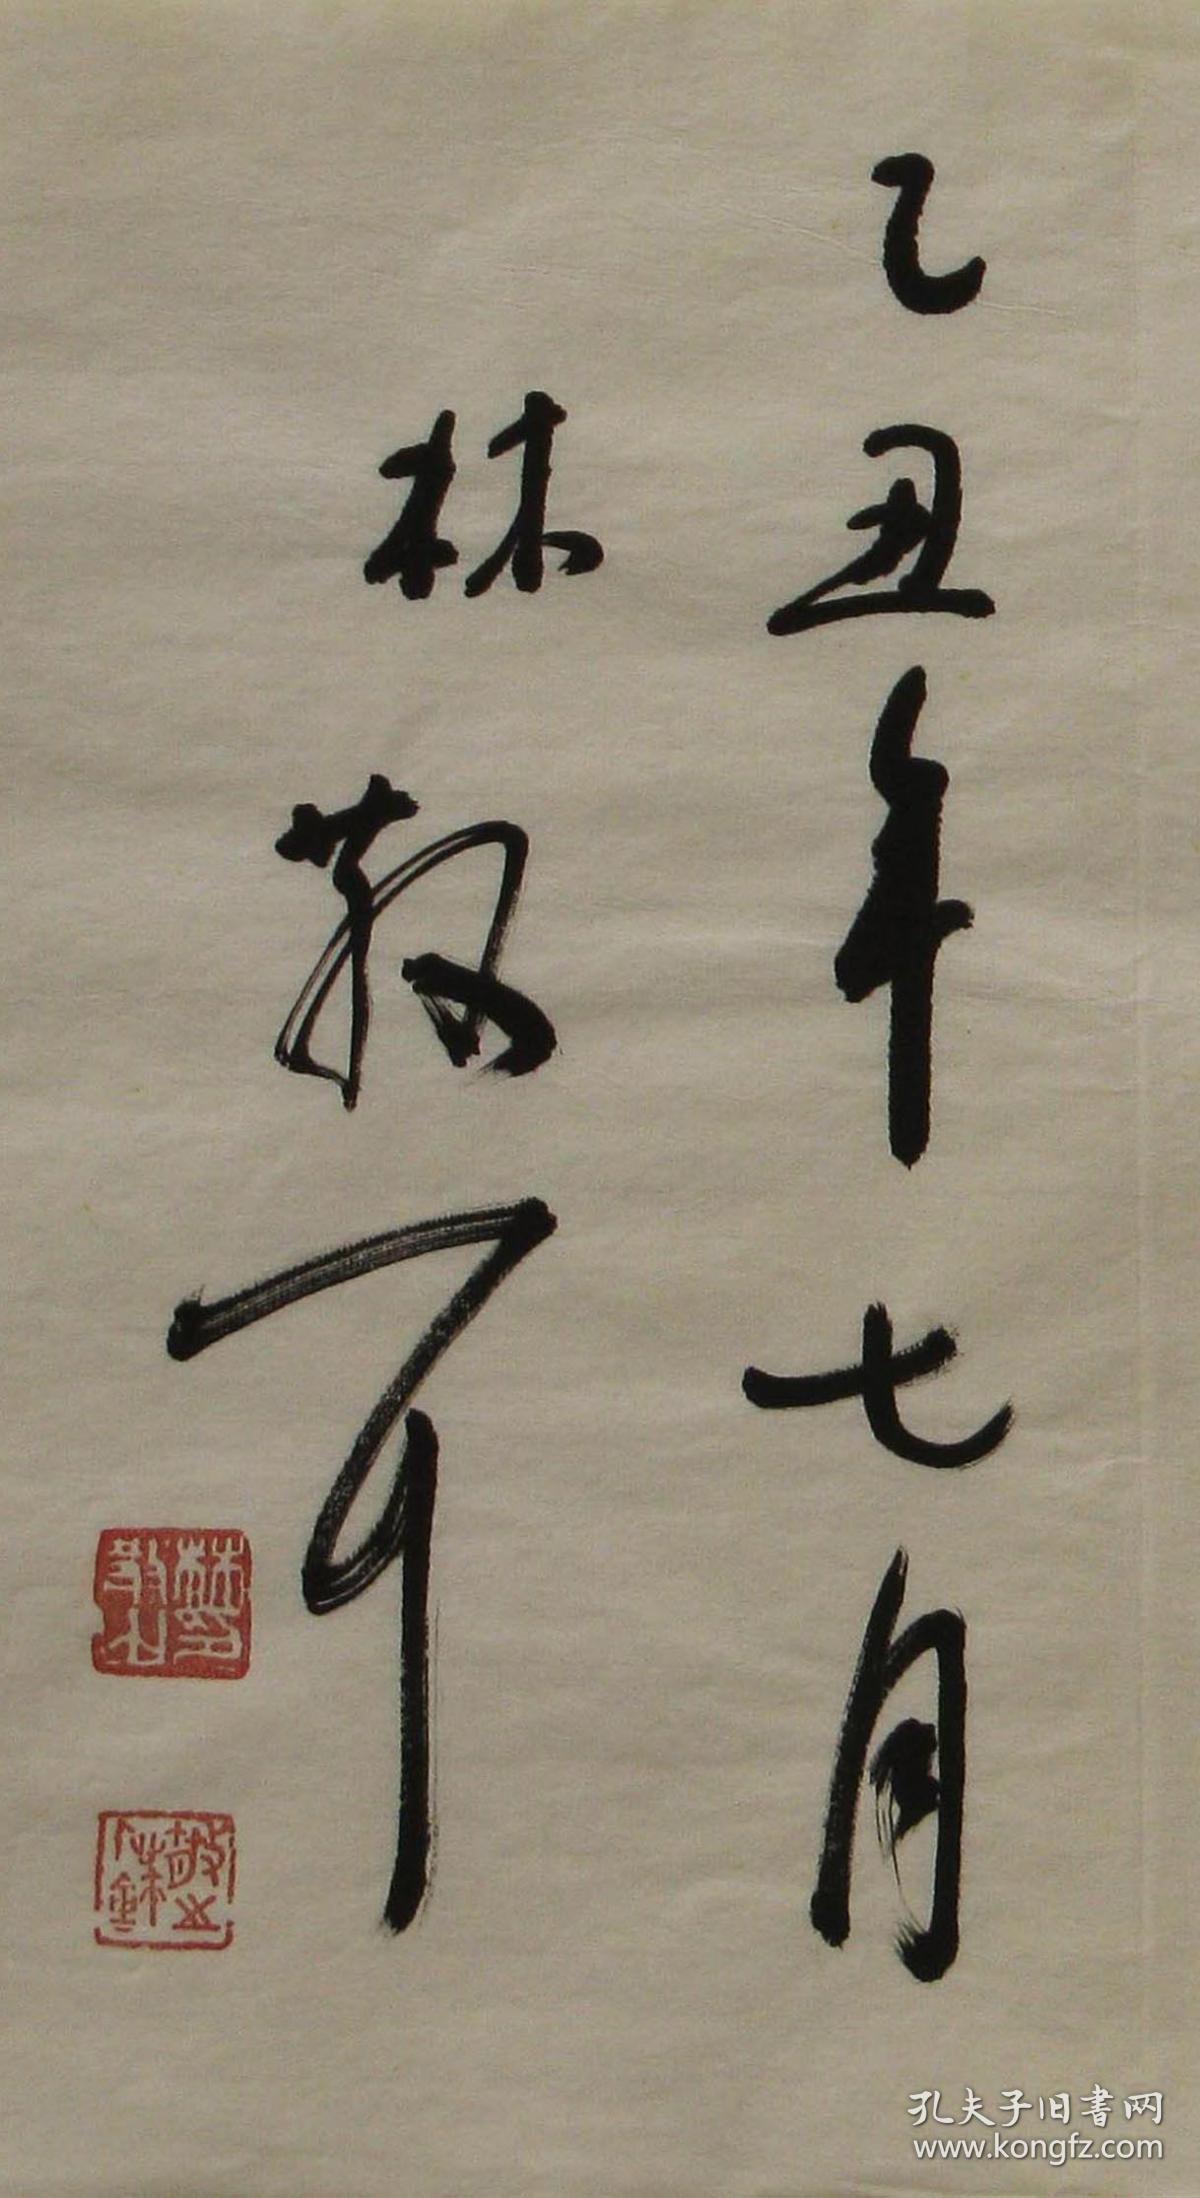 乙丑年七月
林散耳
孔夫子旧書网
www.kongfz.com